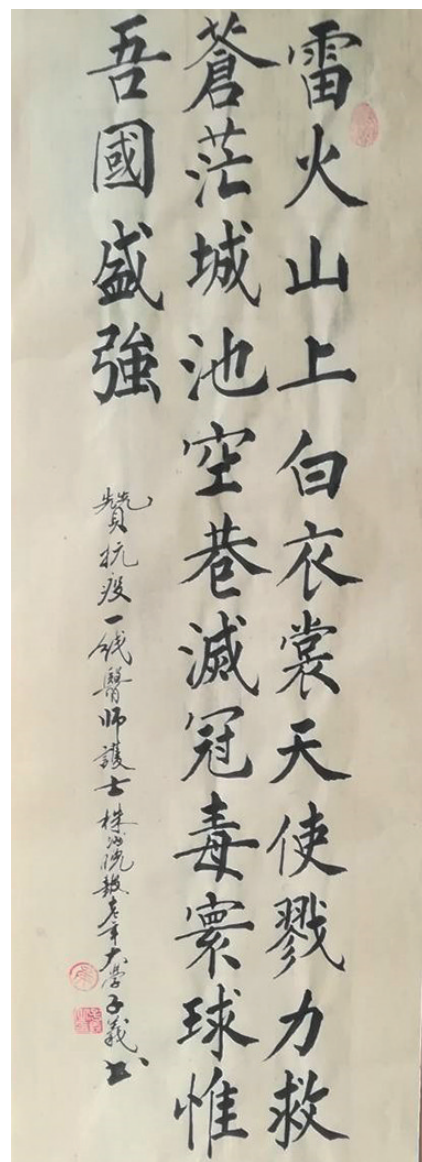 雷火山上白衣裳天使戮力救
蒼茫城池空巷滅冠毒寰球惟
吾國盛強
贊抗疫一线醫师護士株洲晚報老年大學子義书